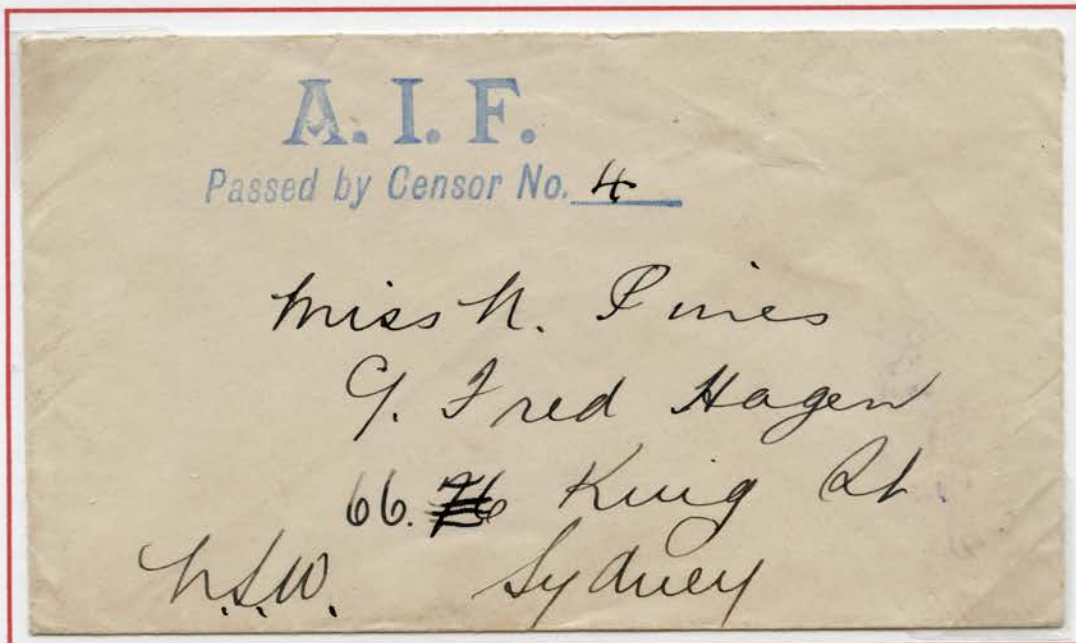 A. I. F.
Passed by Censor No. 4
Miss N. Pines
C/. Fred Hagen
66. King St.
N.S.W. Sydney